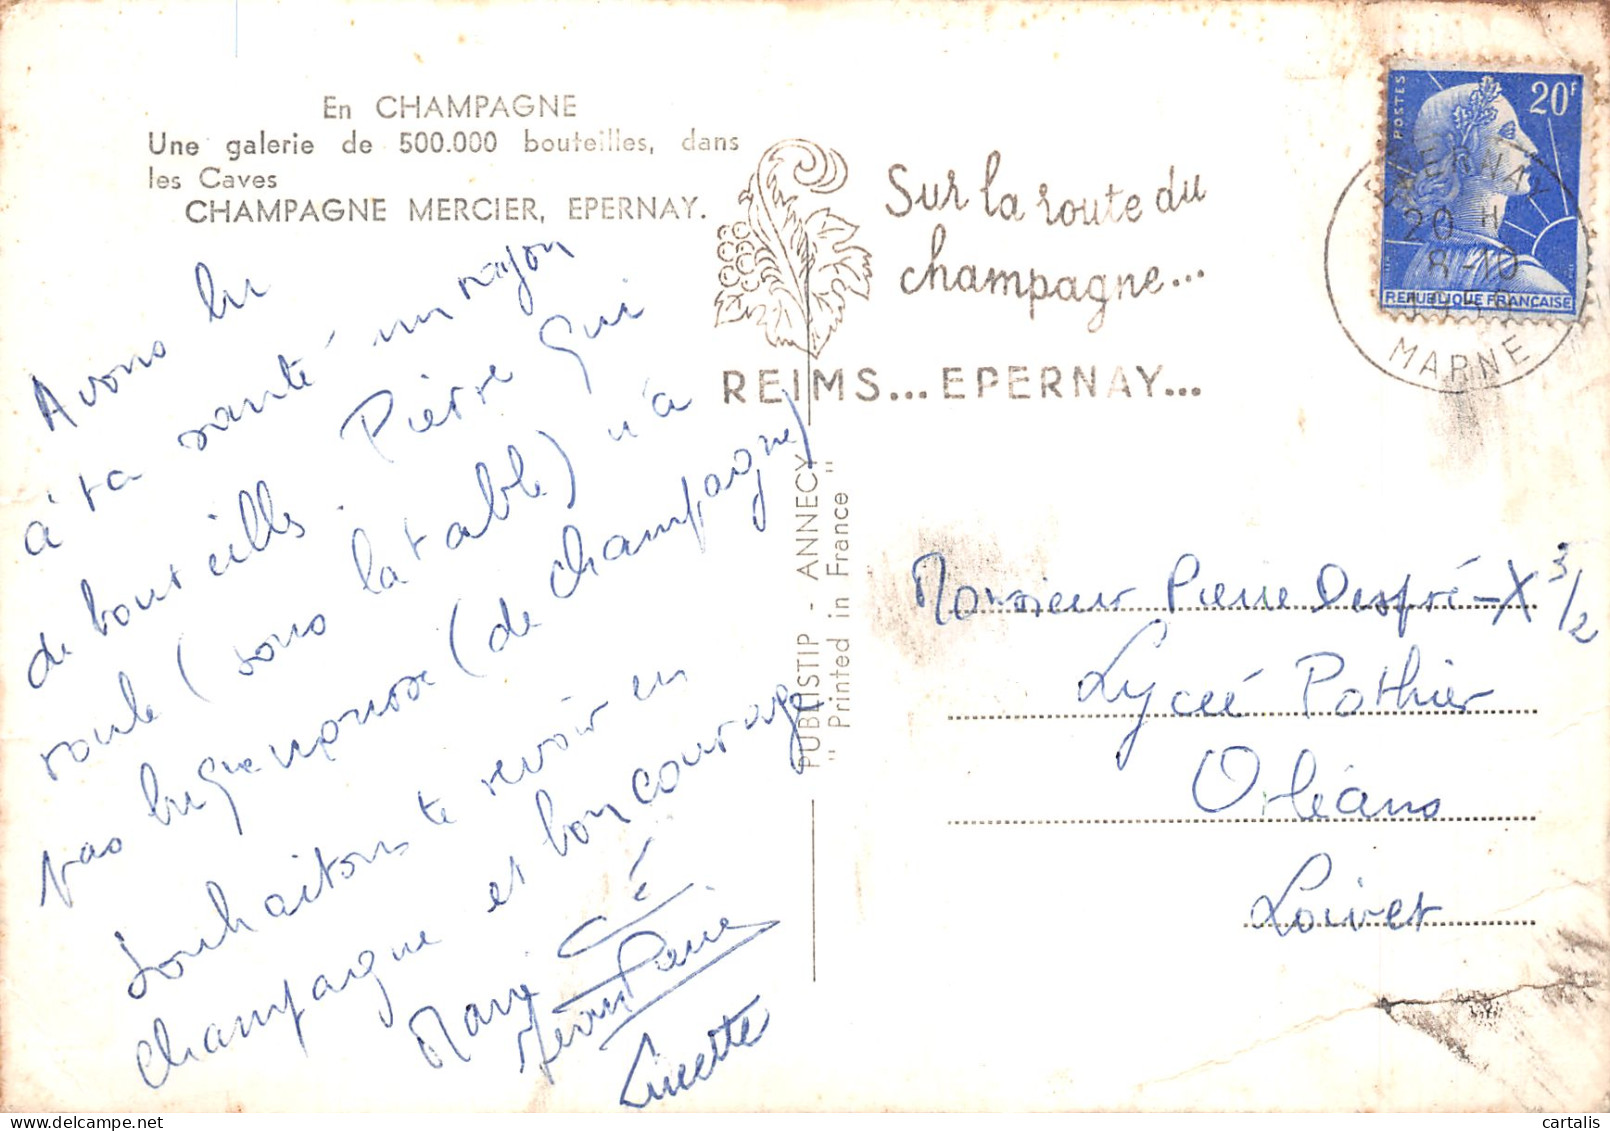 En CHAMPAGNE
Une galerie de 500.000 bouteilles, dans
les Caves
CHAMPAGNE MERCIER, EPERNAY.
Avons bu
à ta santé un rayon
de bouteilles. Pierre qui
roule (sous la table) n'a
pas bu que mousse (de champagne)
Souhaitons te revoir en
champagne et bon courage
Marie
Jean Pierre
Linette
PUBLISTIP - ANNECY
"Printed in France"
Sur la route du
champagne...
REIMS... EPERNAY...
POSTES
20F
REPUBLIQUE FRANÇAISE
EPERNAY
20 H
8-10
MARNE
Monsieur Pierre Despré-X 3/2
Lycée Pothier
Orléans
Loiret
cartalis
delcampe.net